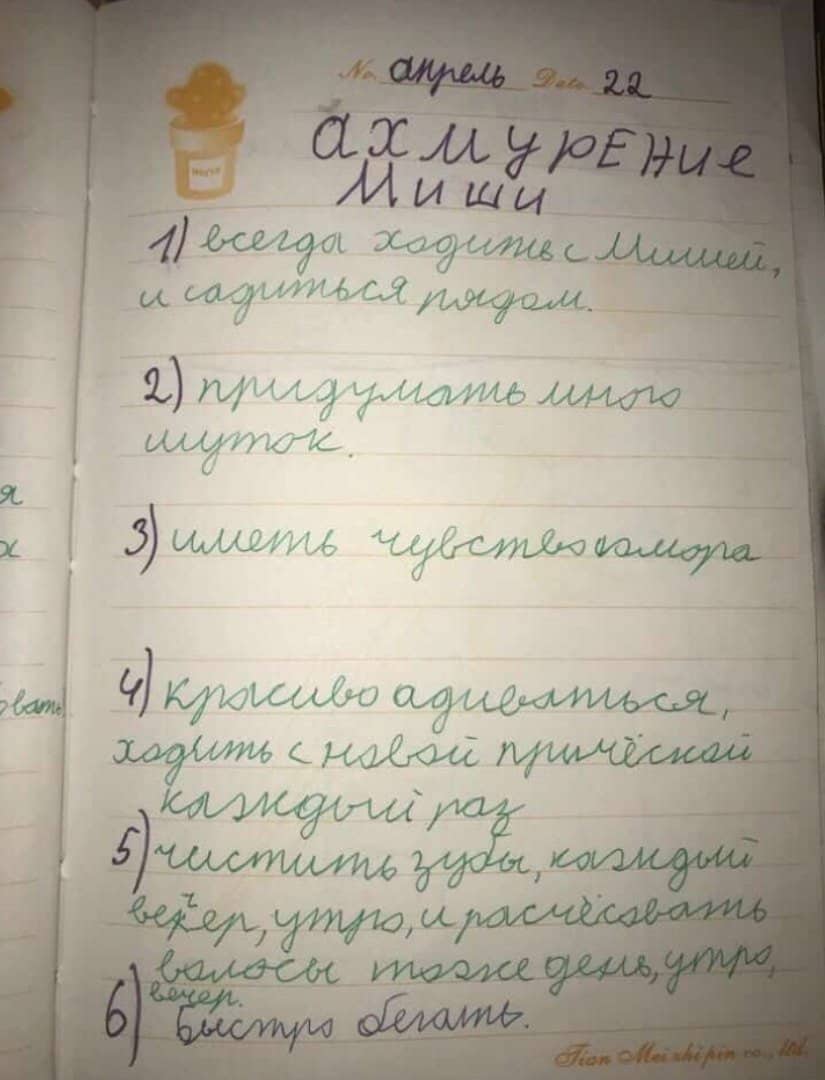 No. апрель Date 22
ахмурЕние
Миши
1) всегда ходить с Мишей,
и садиться рядом.
2) придумать много
шуток.
3) иметь чувство юмора
4) красиво адиваться,
ходить с новой причёской
каждый раз
5) чистить зубы, каждый
вечер, утро, и расчёсовать
волосы тоже день, утро,
вечер.
6) Быстро бегать.
я
х
овать
Tian Mei zhi pin co., ltd.